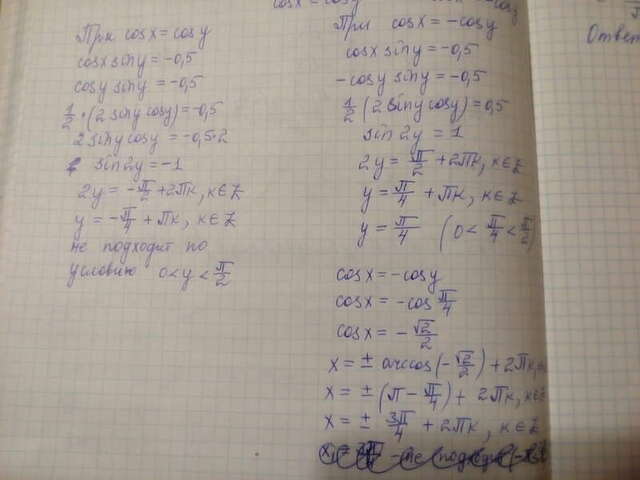 При cosx = cosy
cosx siny = -0,5
cosy siny = -0,5
1/2 · (2 siny cosy) = -0,5
2 siny cosy = -0,5·2
sin2y = -1
2y = -π/2 + 2πk, k∈Z
y = -π/4 + πk, k∈Z
не подходит по
условию 0 < y < π/2
При cosx = -cosy
cosx siny = -0,5
-cosy siny = -0,5
1/2 (2 siny cosy) = 0,5
sin2y = 1
2y = π/2 + 2πk, k∈Z
y = π/4 + πk, k∈Z
y = π/4 (0 < π/4 < π/2)
cosx = -cosy
cosx = -cos π/4
cosx = -√2/2
x = ± arccos(-√2/2) + 2πk,
x = ± (π - π/4) + 2πk, k∈Z
x = ± 3π/4 + 2πk, k∈Z
Ответ